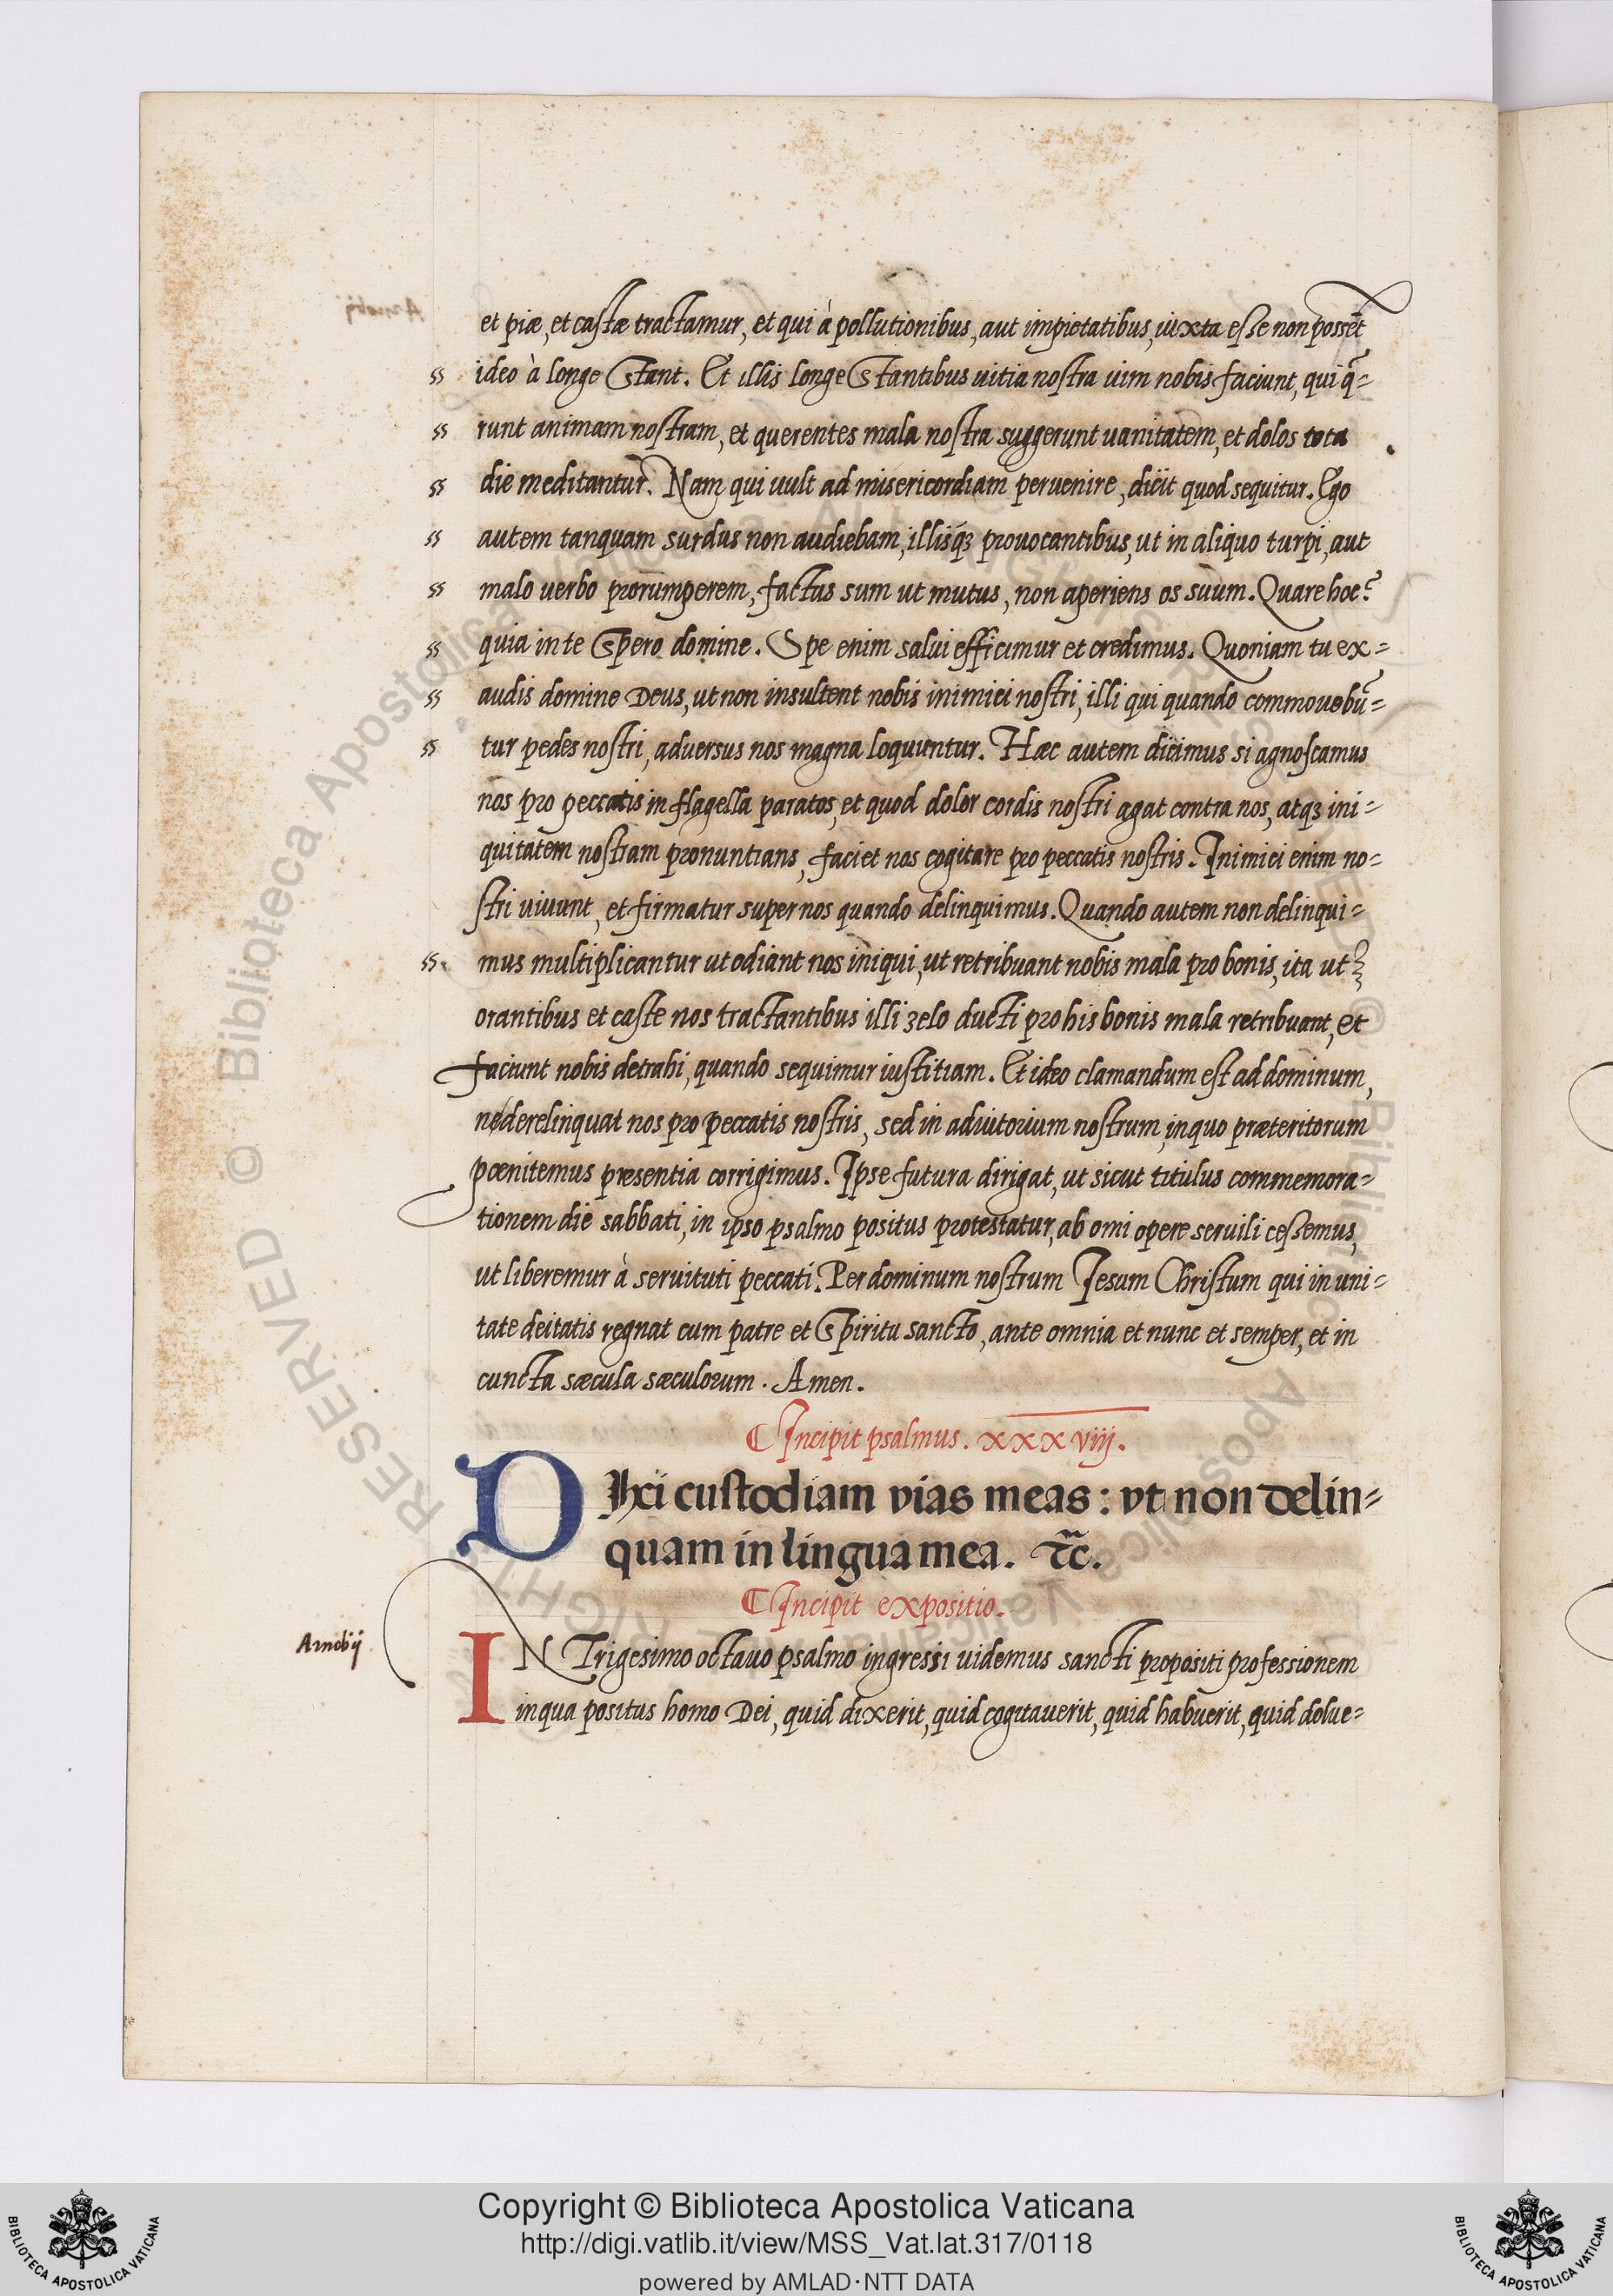 et piæ, et castæ tractamur, et qui à pollutionibus, aut impietatibus, iuxta esse non possēt
ss ideo à longe Stant. Et illis longe Stantibus uitia nostra uim nobis faciunt, qui q̄=
ss runt animam nostram, et querentes mala nostra suggerunt uanitatem, et dolos tota
ss die meditantur. Nam qui uult ad misericordiam peruenire, dicit quod sequitur. Ego
ss autem tanquam surdus non audiebam, illisq3 prouocantibus, ut in aliquo turpi, aut
ss malo uerbo prorumperem, factus sum ut mutus, non aperiens os suum. Quare hoc?
ss quia in te Spero domine. Spe enim salui efficimur et credimus. Quoniam tu ex=
ss audis domine Deus, ut non insultent nobis inimici nostri, illi qui quando commouebū=
ss tur pedes nostri, aduersus nos magna loquuntur. Hæc autem dicimus si agnoscamus
nos pro peccatis in flagella paratos, et quod dolor cordis nostri agat contra nos, atq3 ini=
quitatem nostram pronuntians, faciet nos cogitare pro peccatis nostris. Inimici enim no=
stri uiuunt, et firmatur super nos quando delinquimus. Quando autem non delinqui=
ss. mus multiplicantur ut odiant nos iniqui, ut retribuant nobis mala pro bonis, ita ut
orantibus et caste nos tractantibus illi zelo ducti pro his bonis mala retribuant, et
faciunt nobis detrahi, quando sequimur iustitiam. Et ideo clamandum est ad dominum,
ne derelinquat nos pro peccatis nostris, sed in adiutorium nostrum, in quo præteritorum
pœnitemus præsentia corrigimus. Ipse futura dirigat, ut sicut titulus commemora=
tionem die sabbati, in ipso psalmo positus protestatur, ab omi opere seruili cessemus,
ut liberemur à seruituti peccati. Per dominum nostrum Jesum Christum qui in uni=
tate deitatis regnat cum patre et Spiritu sancto, ante omnia et nunc et semper, et in
cuncta sæcula sæculorum. Amen.
¶ Incipit psalmus. xxxviij.
DIxi custodiam vias meas: vt non delin=
quam in lingua mea. ⁊c.
¶ Incipit expositio.
Arnobij
IN Trigesimo octauo psalmo ingressi uidemus sancti propositi professionem
in qua positus homo Dei, quid dixerit, quid cogitauerit, quid habuerit, quid dolue=
© Biblioteca Apostolica Vaticana
RIGHTS RESERVED
Copyright © Biblioteca Apostolica Vaticana
http://digi.vatlib.it/view/MSS_Vat.lat.317/0118
powered by AMLAD·NTT DATA
BIBLIOTECA APOSTOLICA VATICANA
BIBLIOTECA APOSTOLICA VATICANA